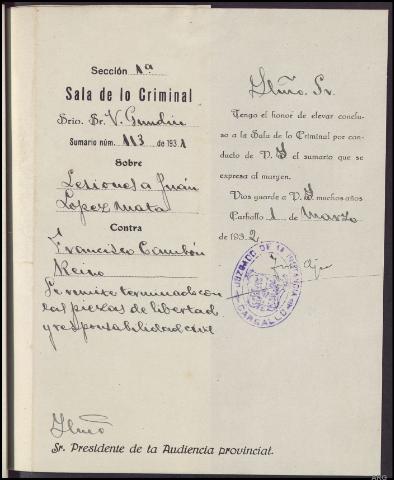 Sección 1ª
Sala de lo Criminal
Srio. Sr. V. Gundin
Sumario núm. 113 de 1931
Sobre
Lesiones a Juán
López Mata
Contra
Francisco Cambón
Reino
Se remite terminado con
las piezas de libertad
y responsabilidad civil
Ilmo
Sr. Presidente de la Audiencia provincial.
Ilmo. Sr.
Tengo el honor de elevar conclu-
so a la Sala de lo Criminal por con-
ducto de V. I el sumario que se
expresa al margen.
Dios guarde a V. I muchos años
Carballo 1 de Marzo
de 1932
JUZGADO DE
CARBALLO
ARG